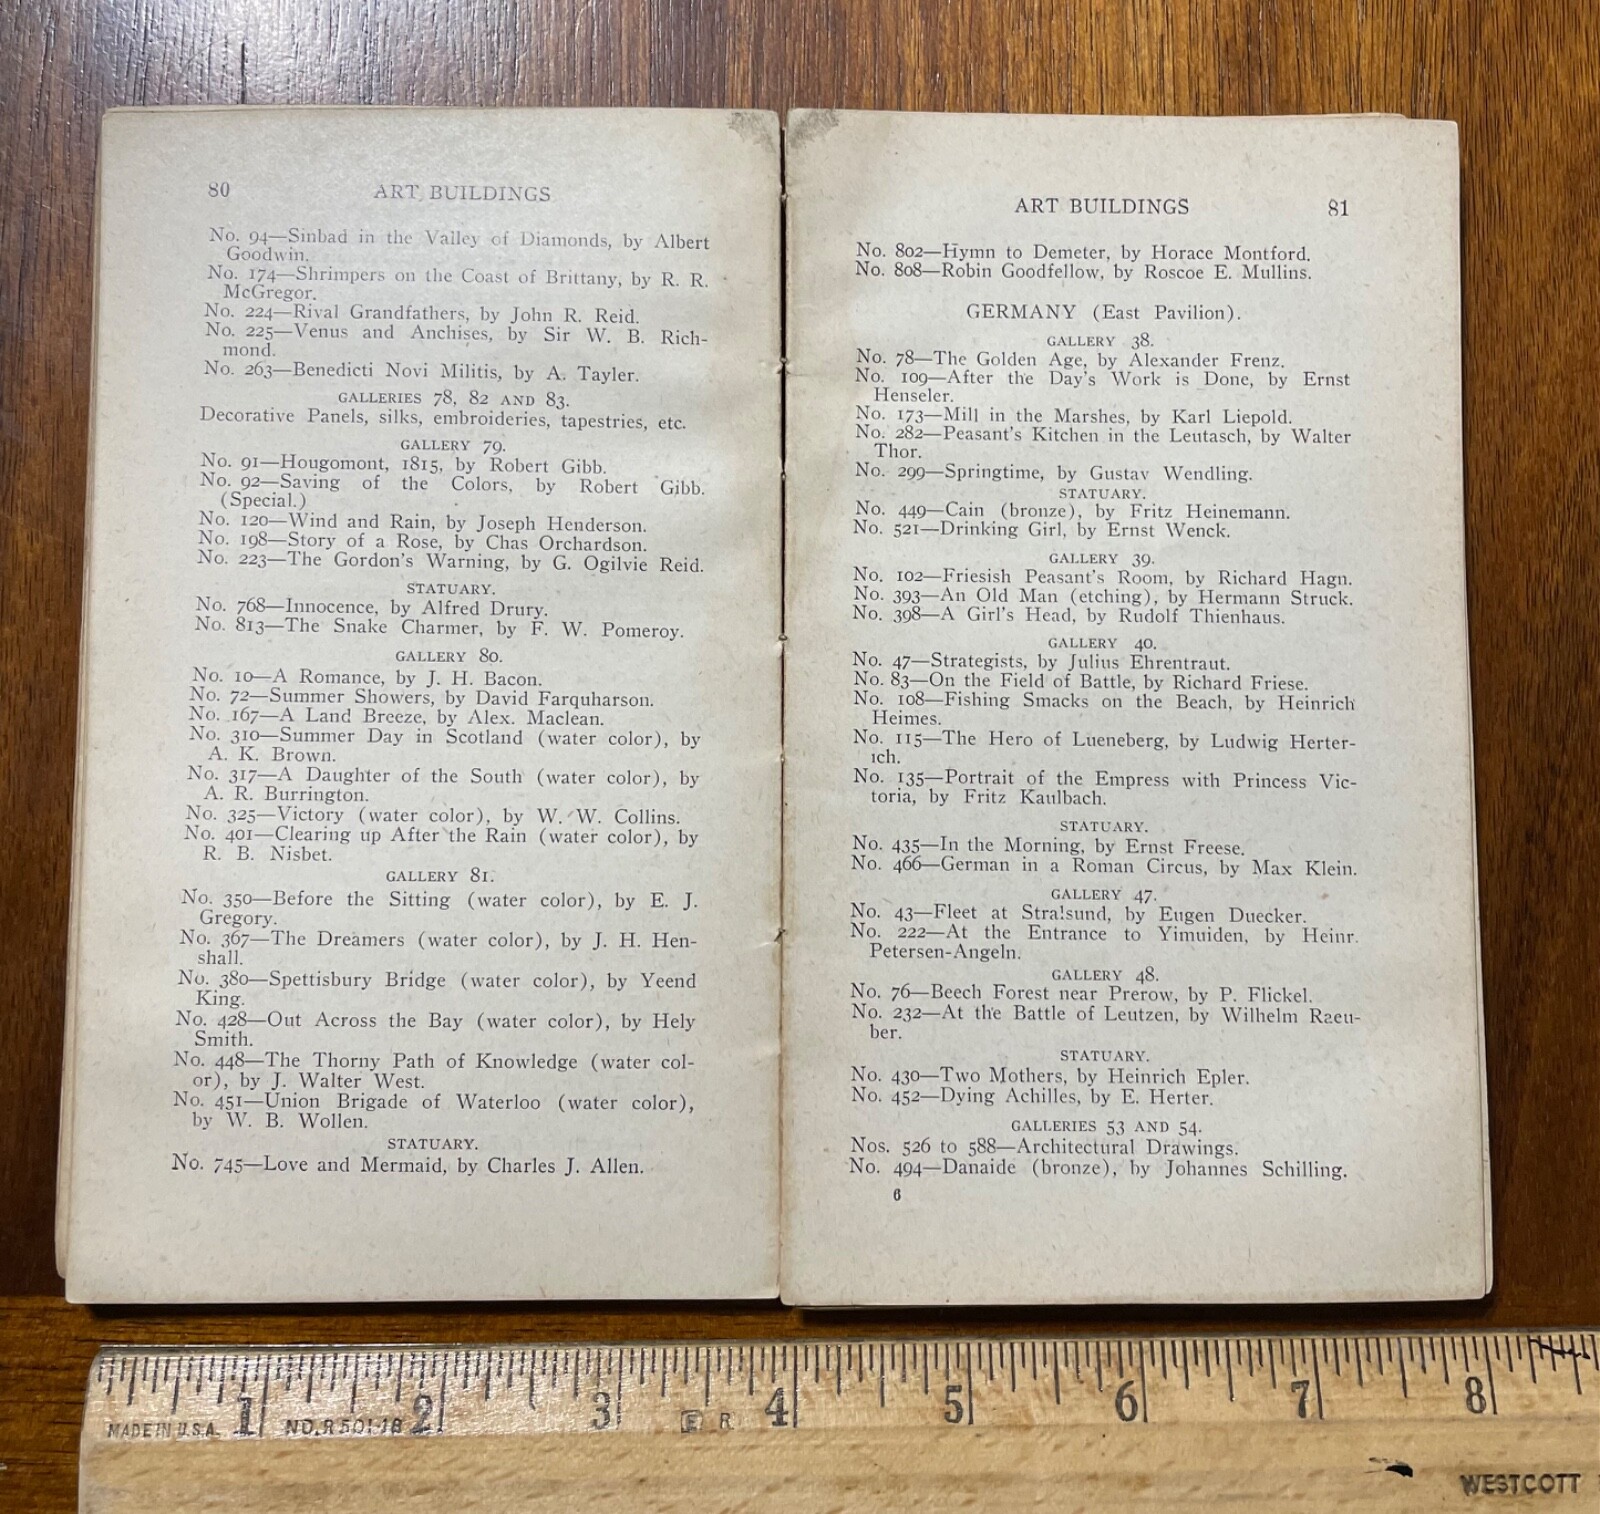 80 ART BUILDINGS
No. 94—Sinbad in the Valley of Diamonds, by Albert
Goodwin.
No. 174—Shrimpers on the Coast of Brittany, by R. R.
McGregor.
No. 224—Rival Grandfathers, by John R. Reid.
No. 225—Venus and Anchises, by Sir W. B. Rich-
mond.
No. 263—Benedicti Novi Militis, by A. Tayler.
GALLERIES 78, 82 AND 83.
Decorative Panels, silks, embroideries, tapestries, etc.
GALLERY 79.
No. 91—Hougomont, 1815, by Robert Gibb.
No. 92—Saving of the Colors, by Robert Gibb.
(Special.)
No. 120—Wind and Rain, by Joseph Henderson.
No. 198—Story of a Rose, by Chas Orchardson.
No. 223—The Gordon's Warning, by G. Ogilvie Reid.
STATUARY.
No. 768—Innocence, by Alfred Drury.
No. 813—The Snake Charmer, by F. W. Pomeroy.
GALLERY 80.
No. 10—A Romance, by J. H. Bacon.
No. 72—Summer Showers, by David Farquharson.
No. 167—A Land Breeze, by Alex. Maclean.
No. 310—Summer Day in Scotland (water color), by
A. K. Brown.
No. 317—A Daughter of the South (water color), by
A. R. Burrington.
No. 325—Victory (water color), by W. W. Collins.
No. 401—Clearing up After the Rain (water color), by
R. B. Nisbet.
GALLERY 81.
No. 350—Before the Sitting (water color), by E. J.
Gregory.
No. 367—The Dreamers (water color), by J. H. Hen-
shall.
No. 380—Spettisbury Bridge (water color), by Yeend
King.
No. 428—Out Across the Bay (water color), by Hely
Smith.
No. 448—The Thorny Path of Knowledge (water col-
or), by J. Walter West.
No. 451—Union Brigade of Waterloo (water color),
by W. B. Wollen.
STATUARY.
No. 745—Love and Mermaid, by Charles J. Allen.
ART BUILDINGS 81
No. 802—Hymn to Demeter, by Horace Montford.
No. 808—Robin Goodfellow, by Roscoe E. Mullins.
GERMANY (East Pavilion).
GALLERY 38.
No. 78—The Golden Age, by Alexander Frenz.
No. 109—After the Day's Work is Done, by Ernst
Henseler.
No. 173—Mill in the Marshes, by Karl Liepold.
No. 282—Peasant's Kitchen in the Leutasch, by Walter
Thor.
No. 299—Springtime, by Gustav Wendling.
STATUARY.
No. 449—Cain (bronze), by Fritz Heinemann.
No. 521—Drinking Girl, by Ernst Wenck.
GALLERY 39.
No. 102—Friesish Peasant's Room, by Richard Hagn.
No. 393—An Old Man (etching), by Hermann Struck.
No. 398—A Girl's Head, by Rudolf Thienhaus.
GALLERY 40.
No. 47—Strategists, by Julius Ehrentraut.
No. 83—On the Field of Battle, by Richard Friese.
No. 108—Fishing Smacks on the Beach, by Heinrich
Heimes.
No. 115—The Hero of Lueneberg, by Ludwig Herter-
ich.
No. 135—Portrait of the Empress with Princess Vic-
toria, by Fritz Kaulbach.
STATUARY.
No. 435—In the Morning, by Ernst Freese.
No. 466—German in a Roman Circus, by Max Klein.
GALLERY 47.
No. 43—Fleet at Stralsund, by Eugen Duecker.
No. 222—At the Entrance to Yimuiden, by Heinr.
Petersen-Angeln.
GALLERY 48.
No. 76—Beech Forest near Prerow, by P. Flickel.
No. 232—At the Battle of Leutzen, by Wilhelm Raeu-
ber.
STATUARY.
No. 430—Two Mothers, by Heinrich Epler.
No. 452—Dying Achilles, by E. Herter.
GALLERIES 53 AND 54.
Nos. 526 to 588—Architectural Drawings.
No. 494—Danaide (bronze), by Johannes Schilling.
6
1 2 3 4 5 6 7 8
MADE IN U.S.A. NO. R501-18 E R
WESTCOTT